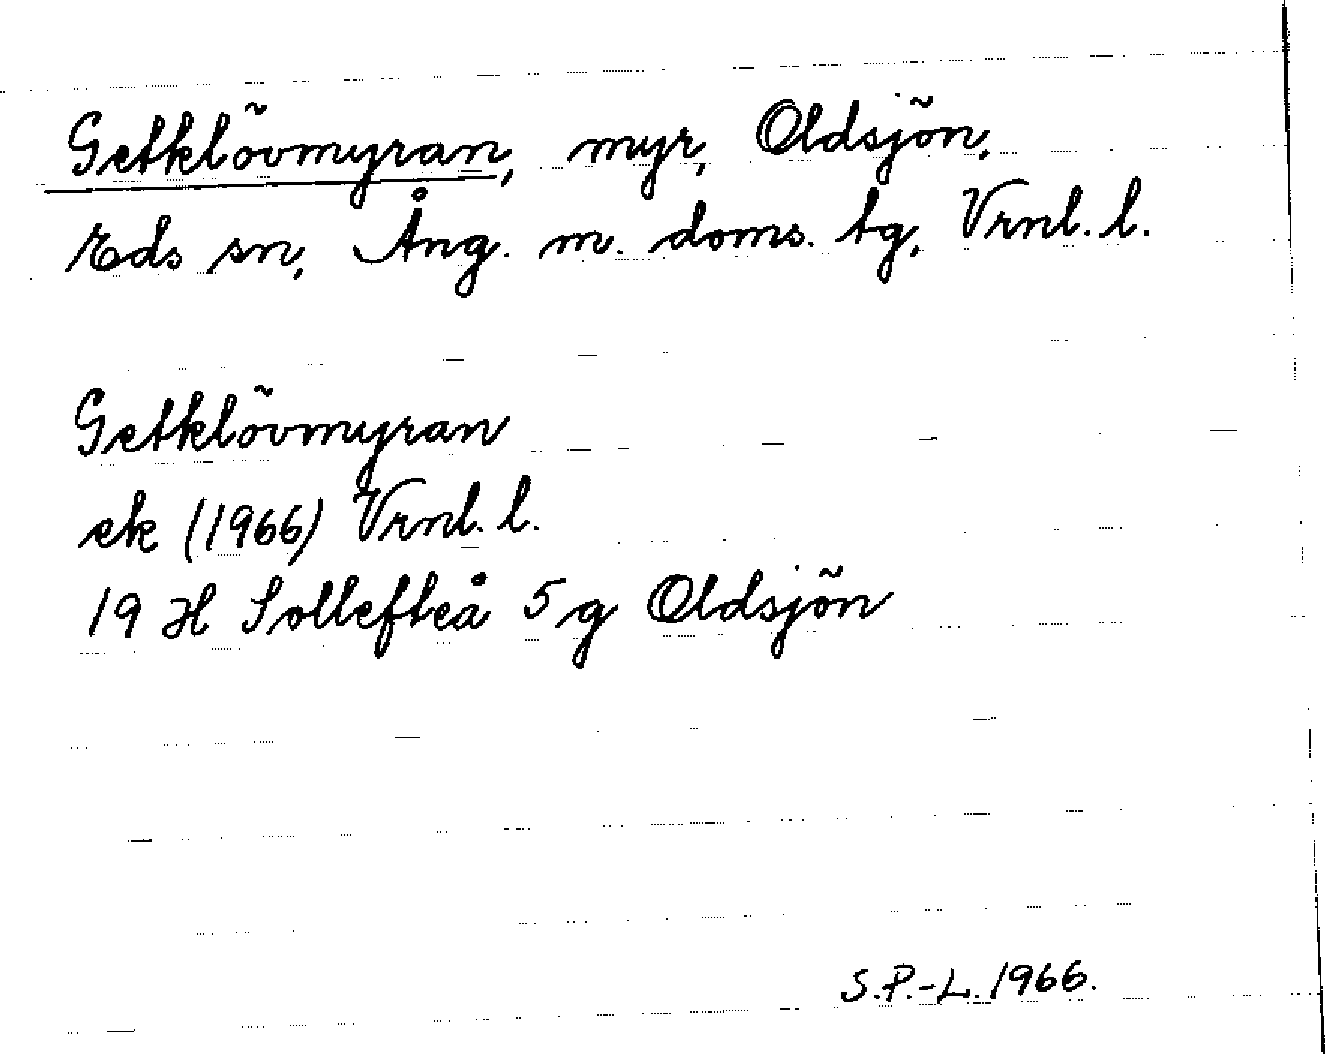 Getklövmyran, myr, Oldsjön,
Eds sn, Ång. m. doms. tg, Vrnl. l.
Getklövmyran
ek (1966) Vrnl. l.
19 H Sollefteå 5 g Oldsjön
S.P.-L. 1966.